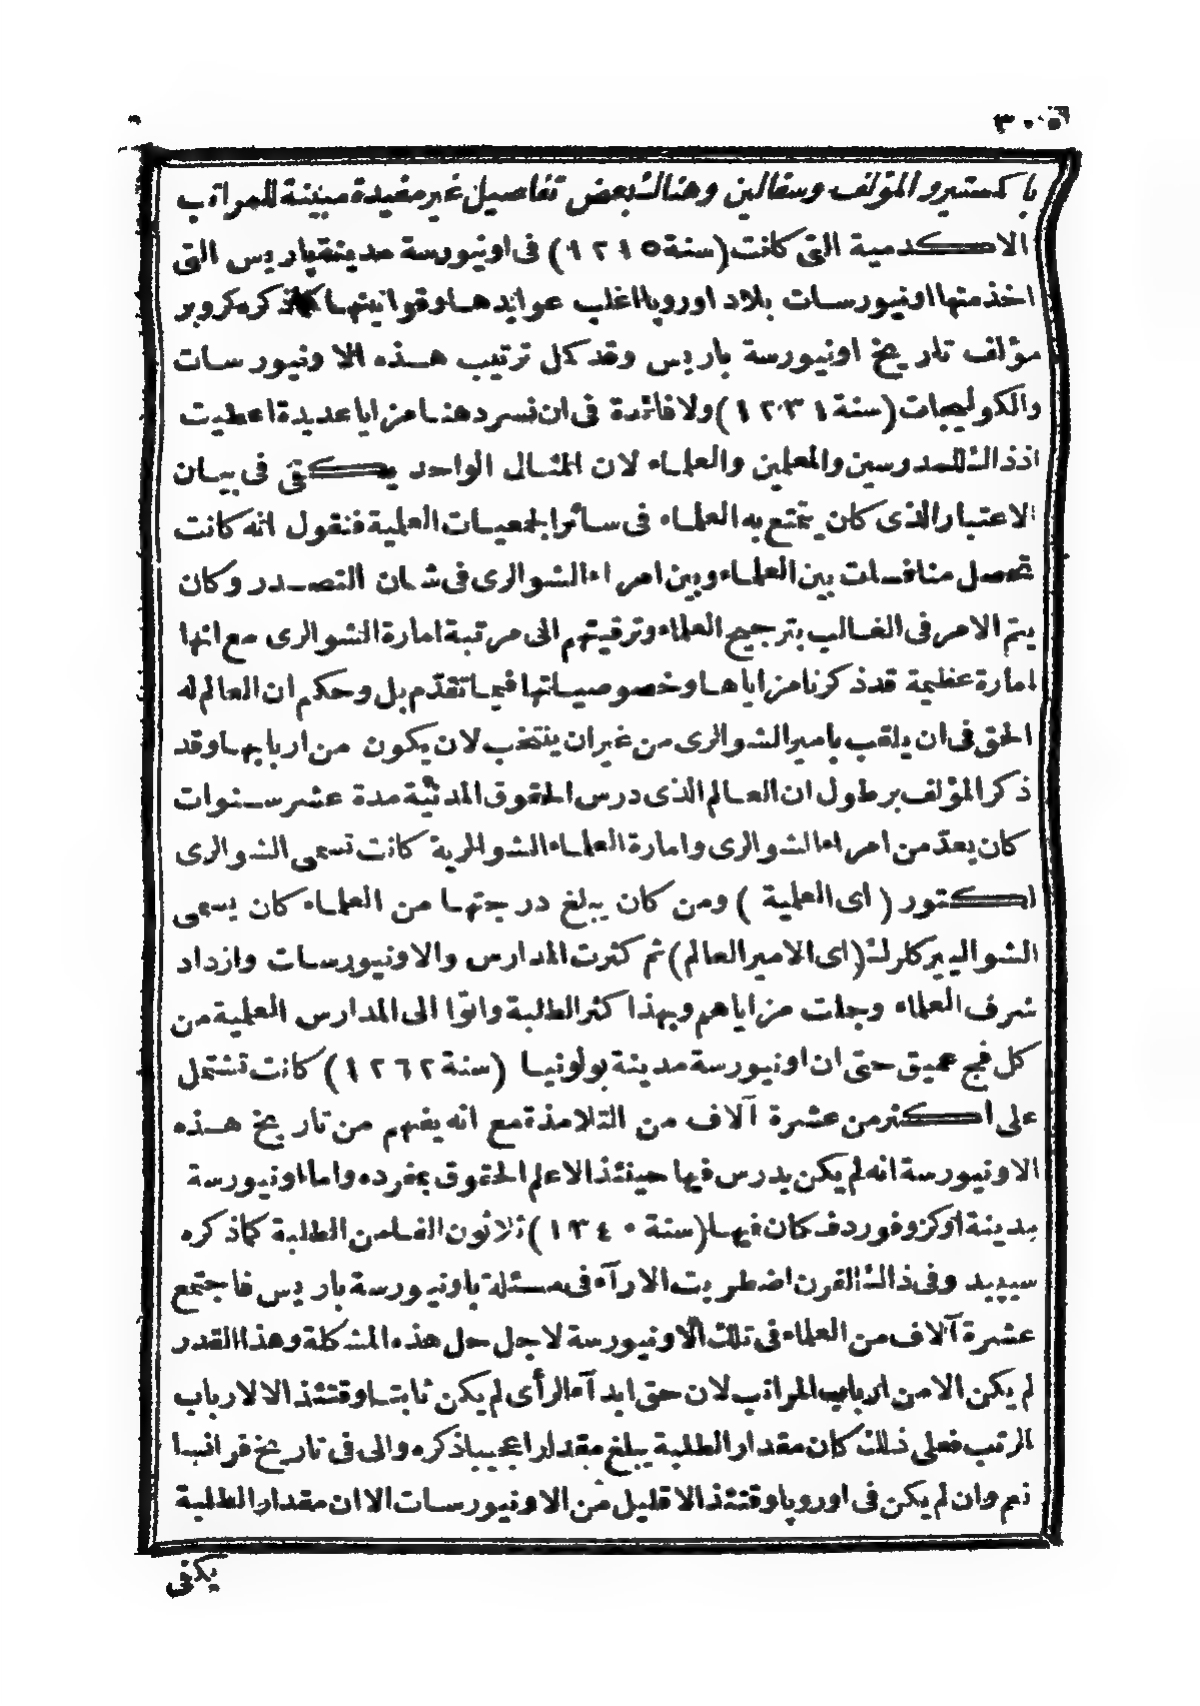 با كستيرو المؤلف وسقالين وهنالك بعض تفاصيل غير مفيدة مبينة للمراتب
الاكدمية التى كانت (سنة ١٢١٥) فى اونيورسة مدينة باريس التى
اخذ منها اونيورسات بلاد اوروپا اغلب عوايدها وقوانينها كما ذكره كروير
مؤلف تاريخ اونيورسة باريس وقد كمل ترتيب هذه الاونيورسات
والكوليجات (سنة ١٢٣١) ولا فائدة فى ان نسرد هنا مزايا عديدة اعطيت
اذ ذالك للمدرسين والمعلمين والعلماء لان المثال الواحد يكتفى فى بيان
الاعتبار الذى كان يتمتع به العلماء فى سائر الجمعيات العلمية فنقول انه كانت
تحصل منافسات بين العلماء وبين امراء الشوالرى فى شان التصدر وكان
يتم الامر فى الغالب بترجيح العلماء وترقيتهم الى مرتبة امارة الشوالرى مع انها
امارة عظيمة قد ذكرنا مزاياها وخصوصياتها فيما تقدّم بل وحكم ان العالم له
الحق فى ان يلقب بامير الشوالرى من غير ان ينتخب لان يكون من اربابها وقد
ذكر المؤلف برطول ان العالم الذى درس الحقوق المدنية مدة عشر سنوات
كان يعدّ من امراء الشوالرى وامارة العلماء الشوالرية كانت تسمى الشوالرى
اكتور (اى العلمية) ومن كان يبلغ درجتها من العلماء كان يسمى
الشواليير كلرك (اى الامير العالم) ثم كثرت المدارس والاونيورسات وازداد
شرف العلماء وجلت مزاياهم وبهذا كثر الطلبة واتوا الى المدارس العلمية من
كل فج عميق حتى ان اونيورسة مدينة بولونيا (سنة ١٢٦٢) كانت تشتمل
على اكثر من عشرة آلاف من التلامذة مع انه يفهم من تاريخ هذه
الاونيورسة انه لم يكن يدرس فيها حينئذ الا علم الحقوق بمفرده واما اونيورسة
مدينة اوكزوفورد فكان فيها (سنة ١٣٤٠) ثلاثون الفا من الطلبة كما ذكره
سيبيد وفى ذالك القرن اضطربت الارآء فى مسئلة باونيورسة باريس فاجتمع
عشرة آلاف من العلماء فى تلك الاونيورسة لاجل حل هذه المشكلة وهذا القدر
لم يكن الا من ارباب المراتب لان حق ابداء الرأى لم يكن ثابتا وقتئذ الا لارباب
الرتب فعلى ذلك كان مقدار الطلبة يبلغ مقدارا عجيبا ذكره والى فى تاريخ فرانسا
نعم وان لم يكن فى اوروپا وقتئذ الا قليل من الاونيورسات الا ان مقدار الطلبة
يكفى